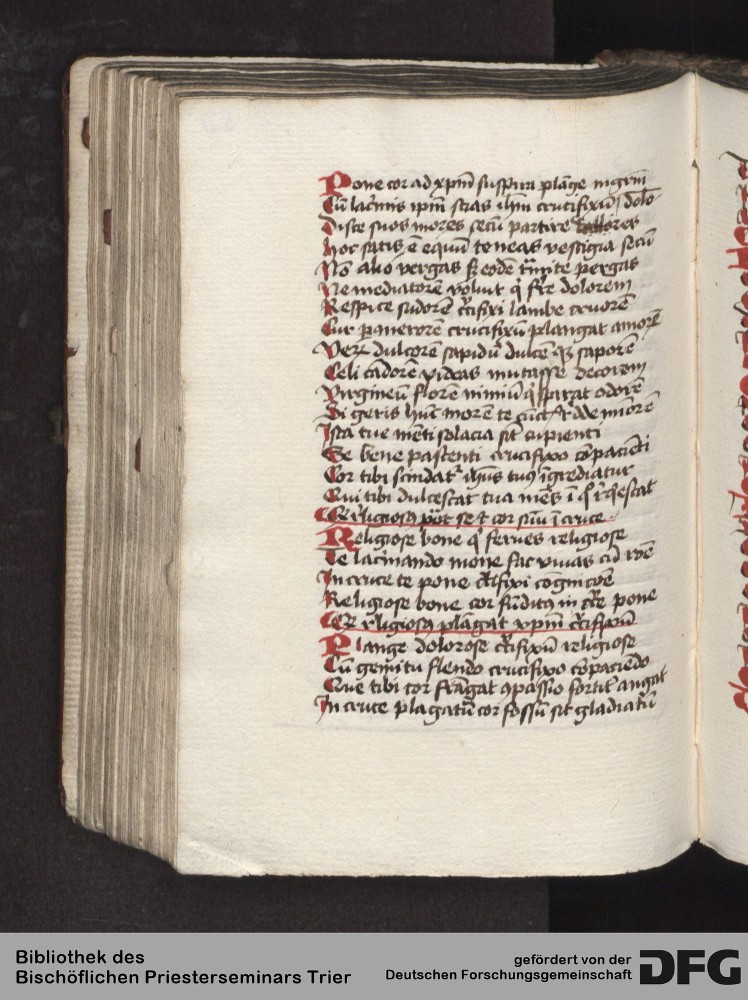 Pone cor ad xpm̄ suspira plāge nigrm̄
Cū lacrīis ipm̄ scias ihm̄ crucifixū dolo
Disce suos mores secū partire dolores
Hoc satis ē equū teneas vestigia secū
Nō alio vergas s eodē trāmite pergas
Ne mediatorē voluit q̄ ferre dolorem
Respice sudorē crifixi lambe cruorē
Cur p̄ merorē crucifixū plangat amorē
Verū dulcorē sapidū dulcē qz saporē
Celi cādorē videas mutasse decorem
Virgineū florē nimiū q̄ sparat odorē
Si geris hūc morē te
Ista tue mēti solacia sīt cupienti
Se bene pascenti crucifixo cōpacienti
Cor tibi scindatr ihūs tuus īgrediatur
Qui tibi dulcescat tua mēs ī q̄ reqescat
religiosus pōt se et cor suū ī cruce
Religiose bone qi ferues religione
Te lacrimando mone fac viuas cū
In cruce te pone crifixi cōgnicōe
Religiose bone cor fūditus in cruce pone
religiosus plāgat xpm̄ crifixū
Plange dolorose crifixū religiose
Cū gemitu flendo crucifixo cōpaciēdo
Que tibi cor frāgat qpassio fortit angat
In cruce plagatū cor fossū sit gladiatū
Bibliothek des
Bischöflichen Priesterseminars Trier
gefördert von der
Deutschen Forschungsgemeinschaft
DFG